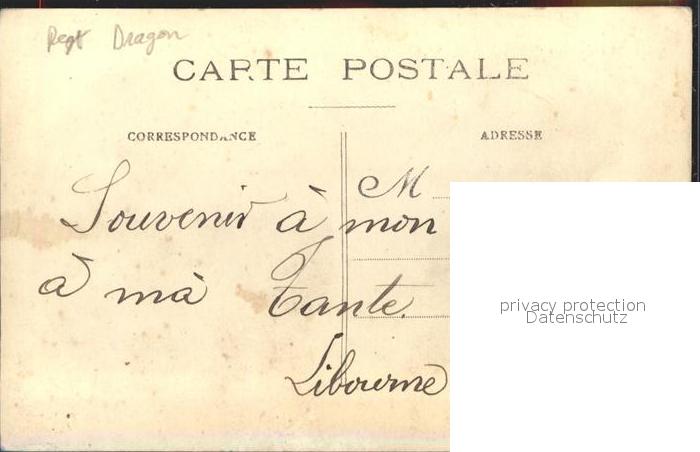 Regt Dragon
CARTE POSTALE
CORRESPONDANCE
ADRESSE
M
Souvenir à mon
à mà Tante.
Libourne
privacy protection
Datenschutz